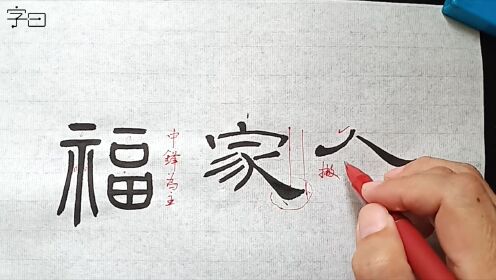 字曰
福 中鋒為主 家 人
撇